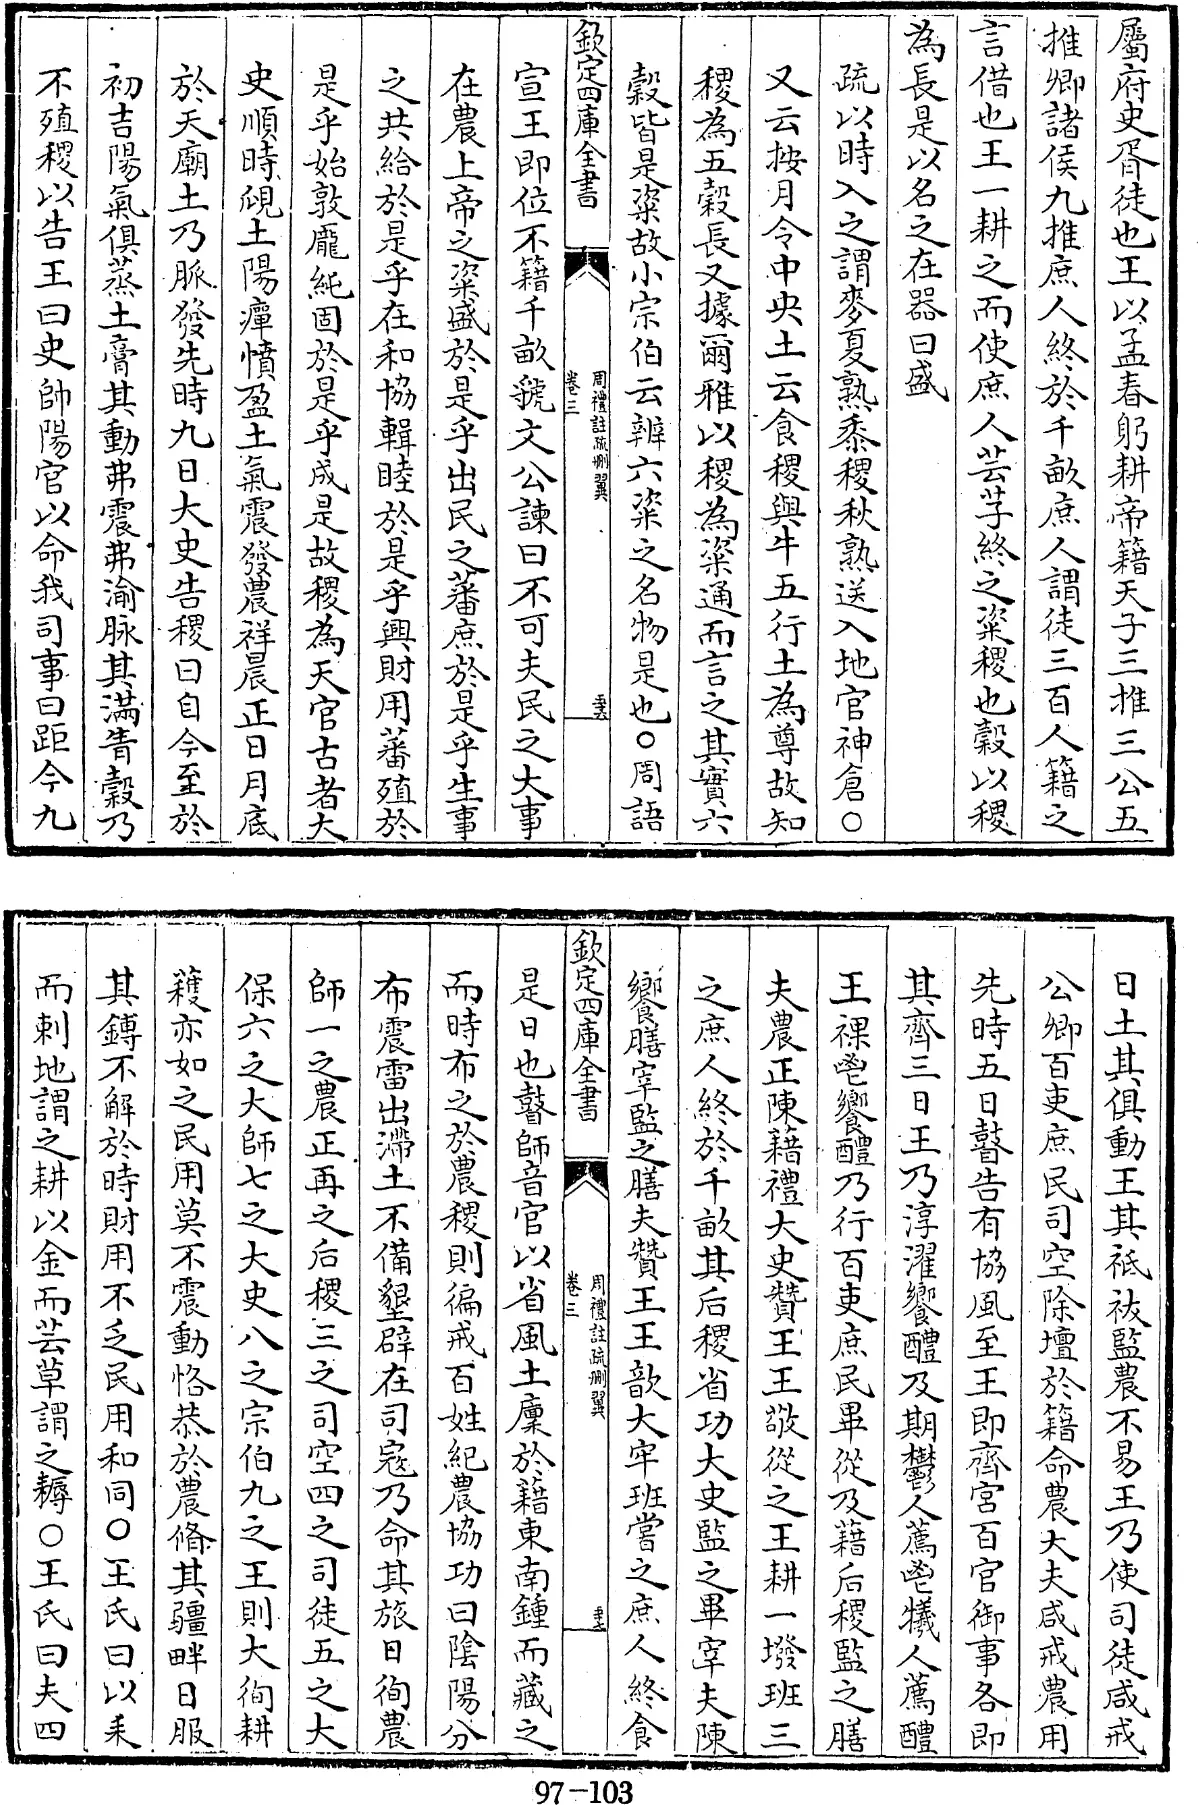 屬府史胥徒也王以孟春躬耕帝籍天子三推三公五
推卿諸侯九推庶人終於千畝庶人謂徒三百人籍之
言借也王一耕之而使庶人芸芓終之粢稷也穀以稷
為長是以名之在器曰盛
疏以時入之謂麥夏熟黍稷秋熟送入地官神倉○
又云按月令中央土云食稷與牛五行土為尊故知
稷為五穀長又據爾雅以稷為粢通而言之其實六
穀皆是粢故小宗伯云辨六粢之名物是也○周語
欽定四庫全書
周禮註疏刪翼
卷三
宣王即位不籍千畝虢文公諫曰不可夫民之大事
在農上帝之粢盛於是乎出民之蕃庶於是乎生事
之共給於是乎在和協輯睦於是乎興財用蕃殖於
是乎始敦龐純固於是乎成是故稷為天官古者大
史順時覛土陽癉憤盈土氣震發農祥晨正日月底
於天廟土乃脈發先時九日大史告稷曰自今至於
初吉陽氣俱蒸土膏其動弗震弗渝脉其滿眚穀乃
不殖稷以告王曰史帥陽官以命我司事曰距今九
日土其俱動王其祗祓監農不易王乃使司徒咸戒
公卿百吏庶民司空除壇於籍命農大夫咸戒農用
先時五日瞽告有協風至王即齊宮百官御事各即
其齊三日王乃淳濯饗醴及期鬱人薦鬯犧人薦醴
王祼鬯饗醴乃行百吏庶民畢從及藉后稷監之膳
夫農正陳藉禮大史贊王王敬從之王耕一墢班三
之庶人終於千畝其后稷省功大史監之畢宰夫陳
饗膳宰監之膳夫贊王王歆大牢班嘗之庶人終食
欽定四庫全書
周禮註疏刪翼
卷三
是日也瞽師音官以省風土廩於藉東南鍾而藏之
而時布之於農稷則徧戒百姓紀農協功曰陰陽分
布震雷出滯土不備墾辟在司寇乃命其旅曰徇農
師一之農正再之后稷三之司空四之司徒五之大
保六之大師七之大史八之宗伯九之王則大徇耕
穫亦如之民用莫不震動恪恭於農脩其疆畔日服
其鎛不解於時財用不乏民用和同○王氏曰以耒
而刺地謂之耕以金而芸草謂之耨○王氏曰夫四
97-103